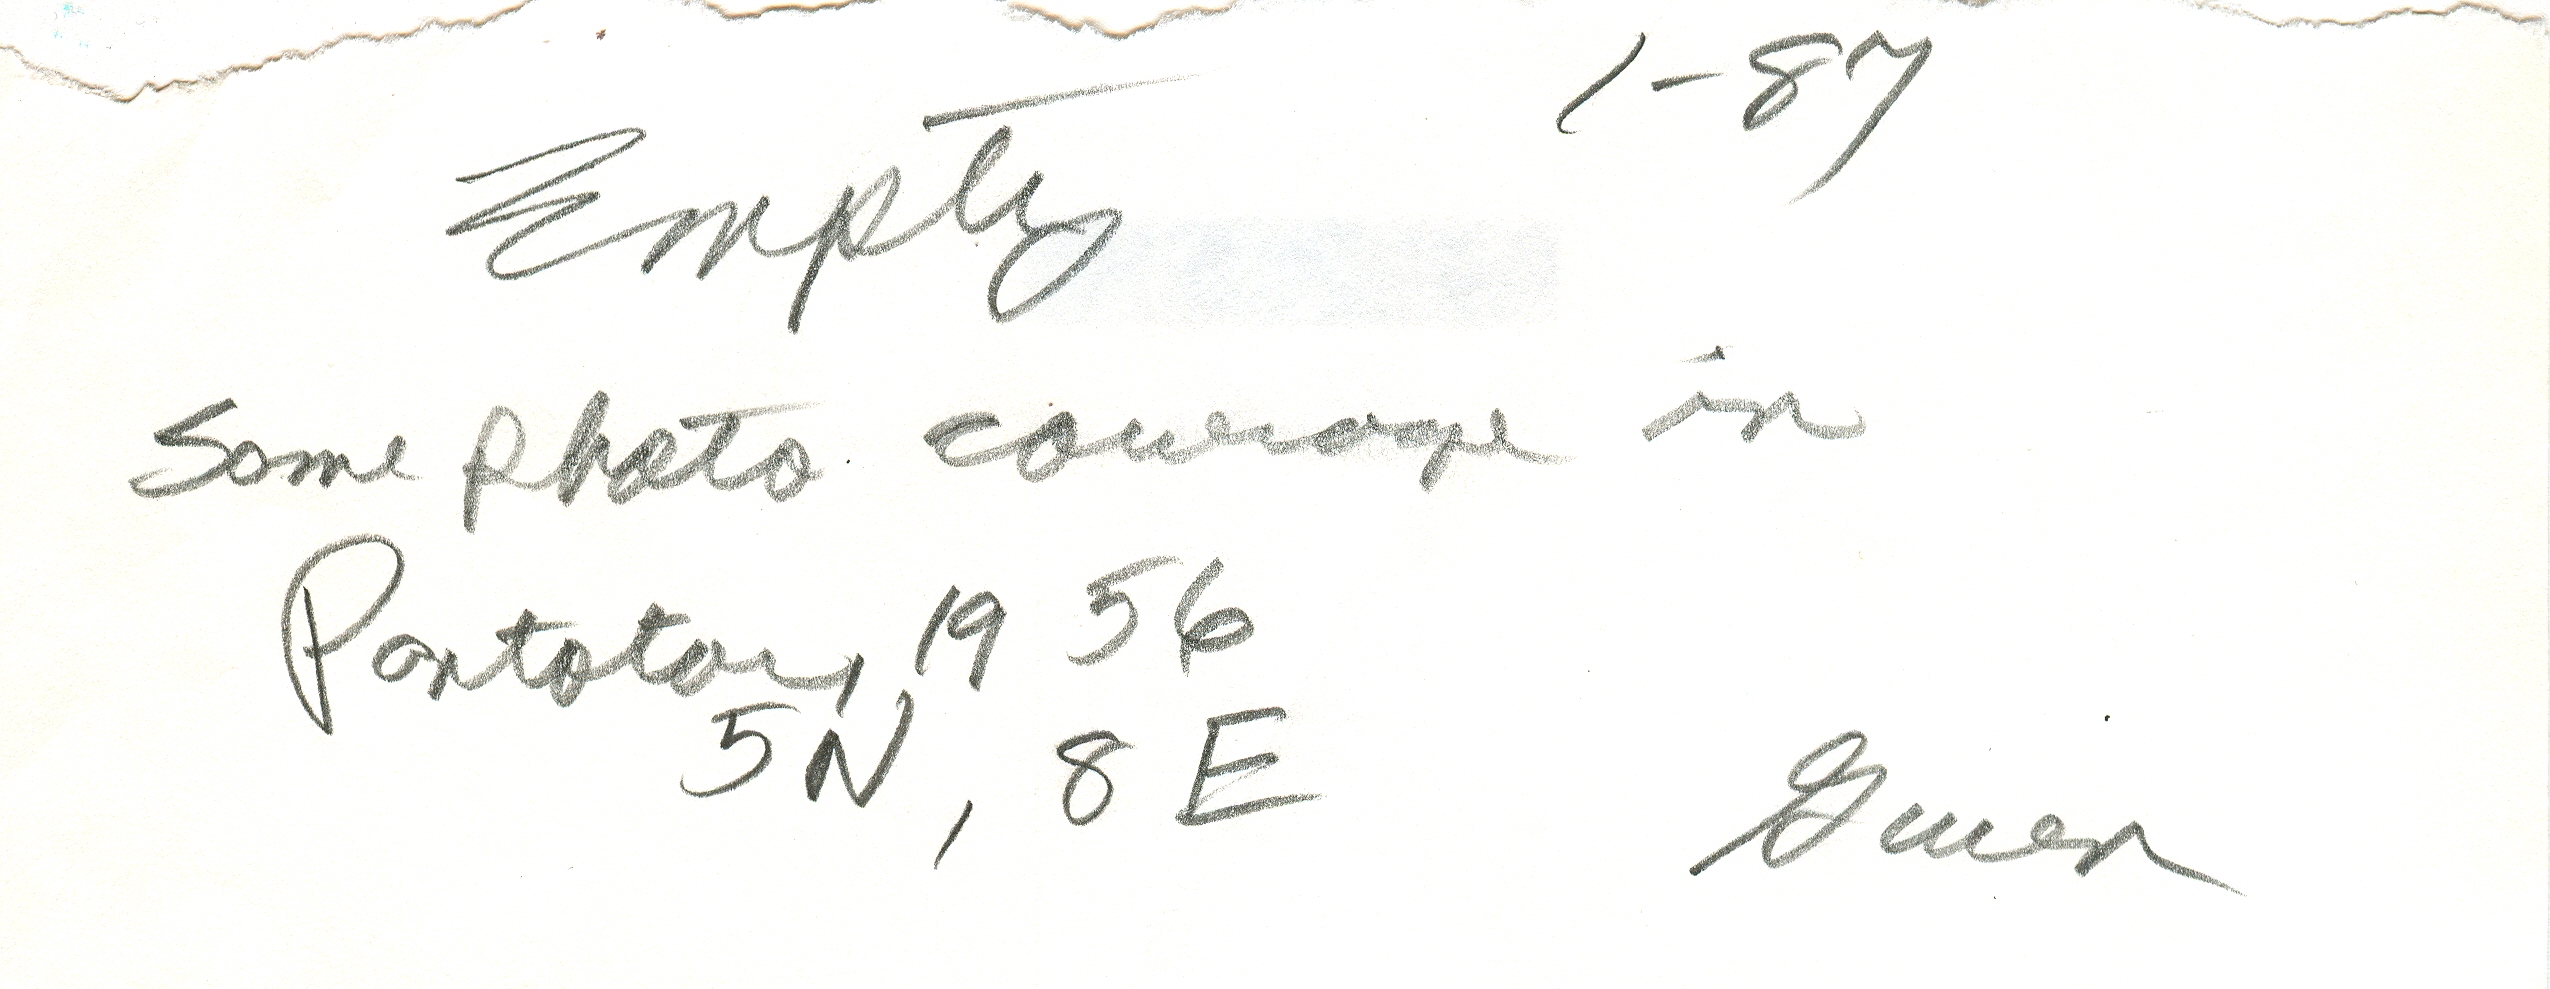 1-87
Empty
Some photo coverage in
Pontotoc, 1956
5N, 8E
Gwen